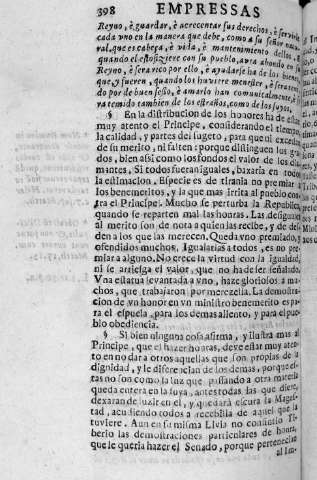 398 EMPRESSAS
Reyno, è guardar, è acrecentar sus derechos, è servirle
cada uno en la manera que debe, como a su señor natu-
ral, que es cabeça, è vida, è mantenimiento dellos. E
quando el estoviziere con su pueblo, avra abondo en su
Reyno, è serà rico por ello, è ayudarse ha de los bienes
que y fueren, quando los huviere menester, è serà teni-
do por de buen sesso, è amarlo han comunalmente, è se-
ra temido tambien de los estraños, como de los suyos.
§ En la distribucion de los honores ha de estar
muy atento el Principe, considerando el tiempo,
la calidad, y partes del sugeto, para que ni excedan
de su merito, ni falten: porque distinguen los gra-
dos, bien assi como los fondos el valor de los dia-
mantes. Si todos fueran iguales, baxaria en todos
la estimacion. Especie es de tirania no premiar a
los benemeritos, y la que mas irrita al pueblo con-
tra el Principe. Mucho se perturba la Republica,
quando se reparten mal las honras. Las desiguales
al merito son de nota a quien las recibe, y de des-
den a los que las merecen. Queda uno premiado, y
ofendidos muchos. Igualarlas a todos, es no pre-
miar a alguno. No crece la virtud con la igualdad,
ni se arriesga el valor, que no ha de ser señalado.
Una estatua levantada a uno, haze gloriosos a mu-
chos, que trabajaron por merecella. La demostra-
cion de un honor en un ministro benemerito es pa-
ra el espuela, para los demas aliento, y para el pue-
blo obediencia.
§ Si bien ninguna cosa afirma, y ilustra mas al
Principe, que el hazer honras, deve estar muy aten-
to en no dar a otros aquellas que son propias de la
dignidad, y le diferencian de los demas, porque es-
tas no son como la luz que passando a otra materia
queda entera en la suya, antes todas las que diere,
dexaran de luzir en el, y quedarà escura la Mages-
tad, acudiendo todos a recebilla de aquel que la
tuviere. Aun en su misma Livia no consintio Ti-
berio las demostraciones particulares de honra,
que le queria hazer el Senado, porque pertenecian
al Im-